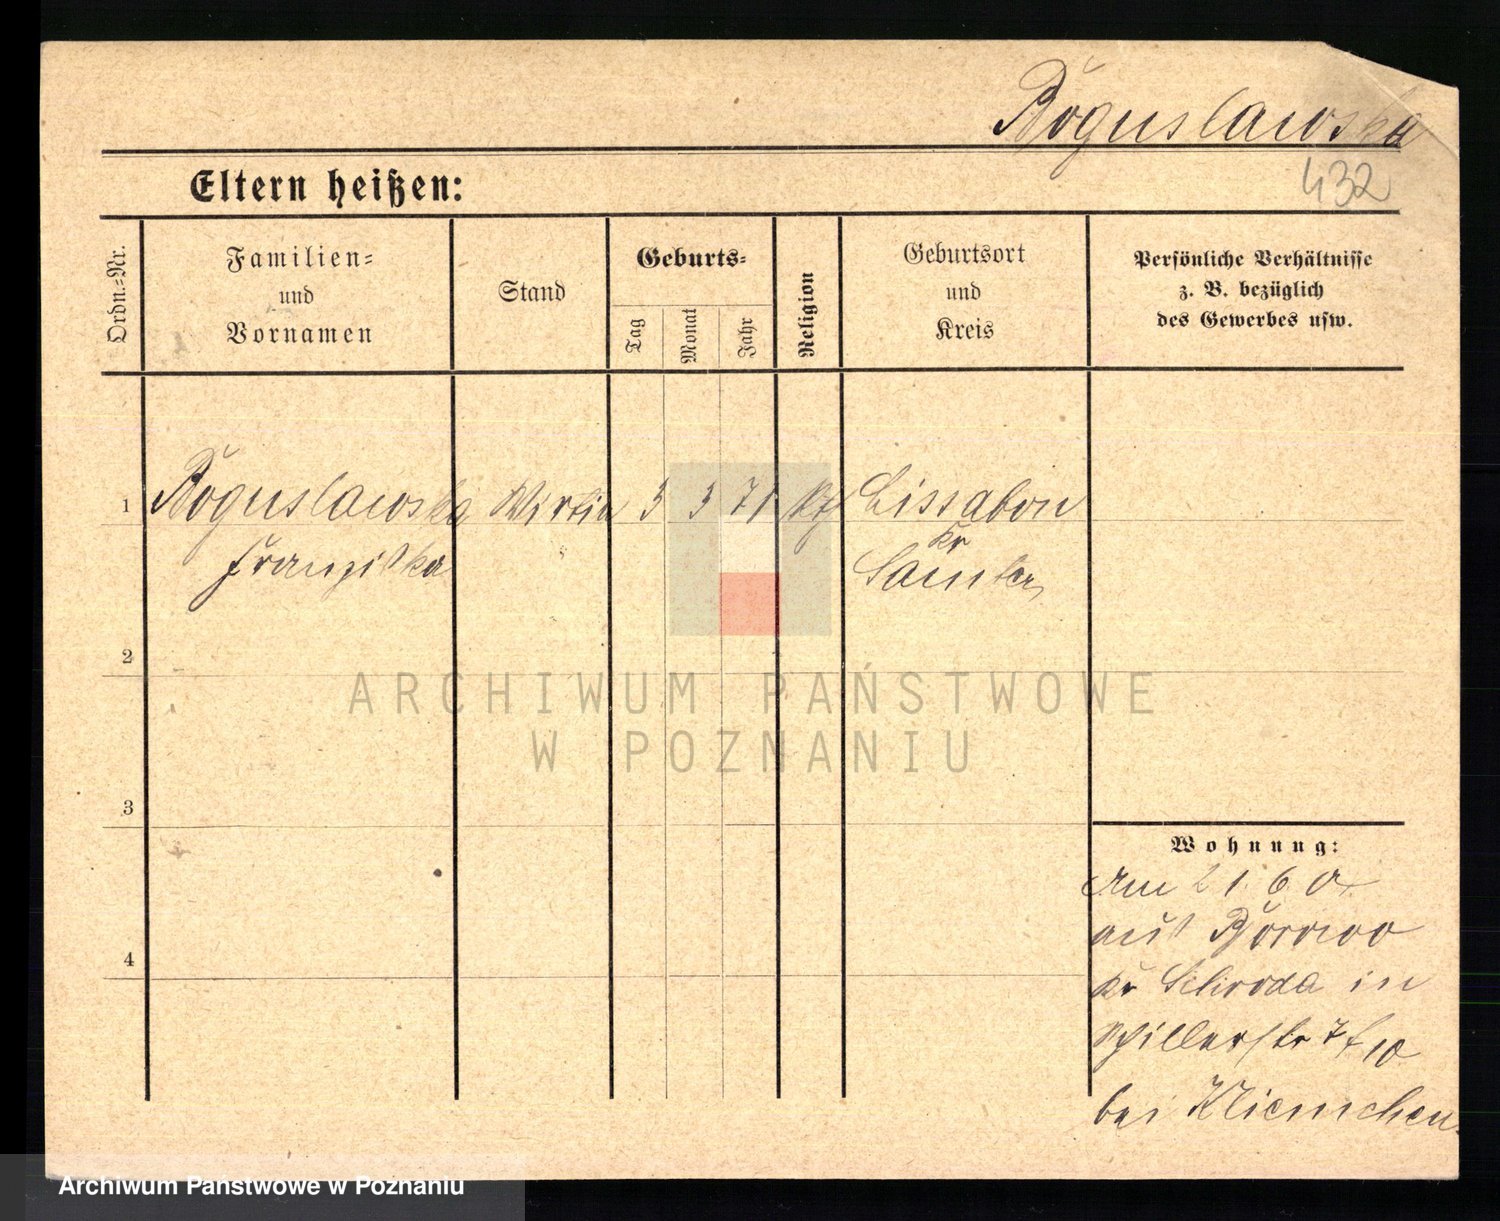 Boguslawska
432
Eltern heißen:
Ordn.-Nr.
Familien-
und
Vornamen
Stand
Geburts-
Tag
Monat
Jahr
Religion
Geburtsort
und
Kreis
Persönliche Verhältnisse
z. B. bezüglich
des Gewerbes usw.
1 Boguslawska Wirtin 3 3 71 Kt Lissabon
Kr
Franziska Samter
2
3
4
Wohnung:
Am 21. 6. 0
aus Borowo
Kr Schroda in
Schillerstr 7 10
bei Kliemchen
ARCHIWUM PAŃSTWOWE
W POZNANIU
Archiwum Państwowe w Poznaniu